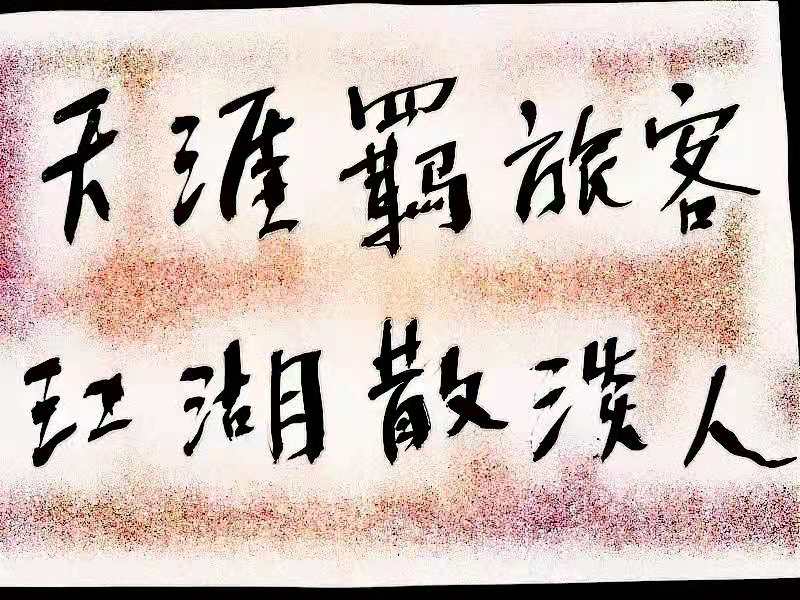 天涯羁旅客
江湖散淡人